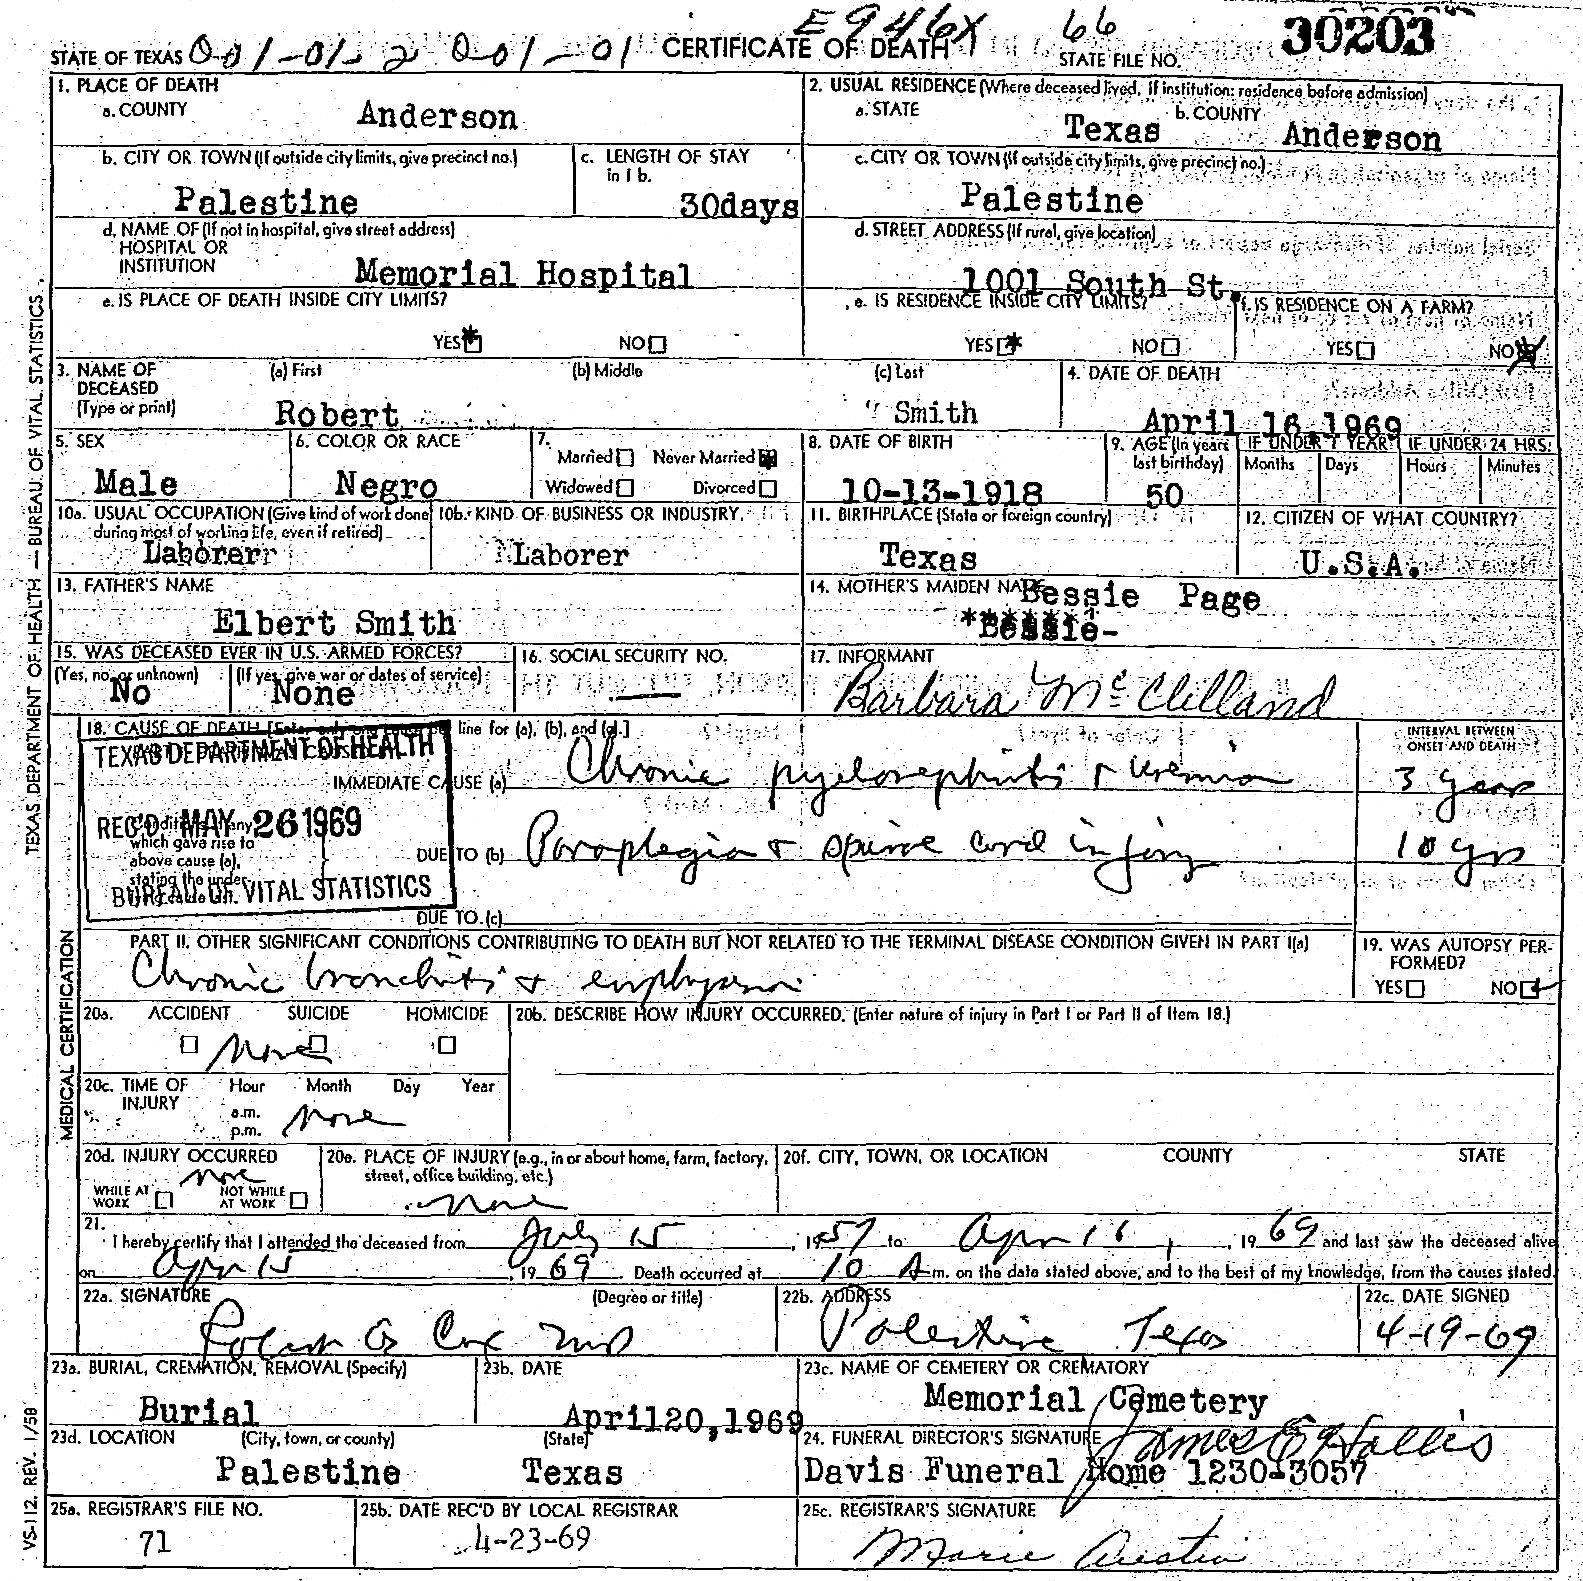 E946X 66 30203
STATE OF TEXAS 001-01-2 001-01 CERTIFICATE OF DEATH STATE FILE NO.
1. PLACE OF DEATH
a. COUNTY
Anderson
2. USUAL RESIDENCE (Where deceased lived, if institution: residence before admission)
a. STATE b. COUNTY
Texas Anderson
b. CITY OR TOWN (If outside city limits, give precinct no.)
Palestine
c. LENGTH OF STAY
in 1 b.
30days
c. CITY OR TOWN (If outside city limits, give precinct no.)
Palestine
d. NAME OF (If not in hospital, give street address)
HOSPITAL OR
INSTITUTION
Memorial Hospital
d. STREET ADDRESS (If rural, give location)
1001 South St.
e. IS PLACE OF DEATH INSIDE CITY LIMITS?
YES NO
e. IS RESIDENCE INSIDE CITY LIMITS?
YES NO
f. IS RESIDENCE ON A FARM?
YES NO
3. NAME OF
DECEASED
(Type or print)
(a) First (b) Middle (c) Last
Robert Smith
4. DATE OF DEATH
April 16,1969
5. SEX
Male
6. COLOR OR RACE
Negro
7.
Married Never Married
Widowed Divorced
8. DATE OF BIRTH
10-13-1918
9. AGE (In years
last birthday)
50
IF UNDER 1 YEAR IF UNDER 24 HRS.
Months Days Hours Minutes
10a. USUAL OCCUPATION (Give kind of work done
during most of working life, even if retired)
Laborerr
10b. KIND OF BUSINESS OR INDUSTRY.
Laborer
11. BIRTHPLACE (State or foreign country)
Texas
12. CITIZEN OF WHAT COUNTRY?
U.S.A.
13. FATHER'S NAME
Elbert Smith
14. MOTHER'S MAIDEN NAME
Bessie Page
Bessie-
15. WAS DECEASED EVER IN U.S. ARMED FORCES?
(Yes, no, or unknown) (If yes, give war or dates of service)
No None
16. SOCIAL SECURITY NO.
—
17. INFORMANT
Barbara McClelland
18. CAUSE OF DEATH [Enter only one cause per line for (a), (b), and (c).]
INTERVAL BETWEEN
ONSET AND DEATH
TEXAS DEPARTMENT OF HEALTH
REC'D. MAY 26 1969
BUREAU OF VITAL STATISTICS
IMMEDIATE CAUSE (a) Chronic pyelonephritis & uremia 3 years
Conditions, if any
which gave rise to
above cause (a),
stating the under-
lying cause last.
DUE TO (b) Paraplegia & spinal cord injury 10 yrs
DUE TO (c)
PART II. OTHER SIGNIFICANT CONDITIONS CONTRIBUTING TO DEATH BUT NOT RELATED TO THE TERMINAL DISEASE CONDITION GIVEN IN PART I(a)
Chronic bronchitis & emphysema
19. WAS AUTOPSY PER-
FORMED?
YES NO
20a. ACCIDENT SUICIDE HOMICIDE
None
20b. DESCRIBE HOW INJURY OCCURRED. (Enter nature of injury in Part I or Part II of Item 18.)
20c. TIME OF
INJURY
Hour Month Day Year
a.m.
p.m.
None
20d. INJURY OCCURRED
None
WHILE AT
WORK
NOT WHILE
AT WORK
20e. PLACE OF INJURY (e.g., in or about home, farm, factory,
street, office building, etc.)
None
20f. CITY, TOWN, OR LOCATION COUNTY STATE
21.
I hereby certify that I attended the deceased from July 15, 1957 to Apr 16, 1969 and last saw the deceased alive
on Apr 15, 1969. Death occurred at 10 A m. on the date stated above, and to the best of my knowledge, from the causes stated.
22a. SIGNATURE (Degree or title)
Robert G Cox MD
22b. ADDRESS
Palestine Texas
22c. DATE SIGNED
4-19-69
23a. BURIAL, CREMATION, REMOVAL (Specify)
Burial
23b. DATE
April20,1969
23c. NAME OF CEMETERY OR CREMATORY
Memorial Cemetery
23d. LOCATION (City, town, or county) (State)
Palestine Texas
24. FUNERAL DIRECTOR'S SIGNATURE
James E Hollis
Davis Funeral Home 1230-3057
25a. REGISTRAR'S FILE NO.
71
25b. DATE REC'D BY LOCAL REGISTRAR
4-23-69
25c. REGISTRAR'S SIGNATURE
Marie Austin
TEXAS DEPARTMENT OF HEALTH — BUREAU OF VITAL STATISTICS
MEDICAL CERTIFICATION
VS-112. REV. 1/58